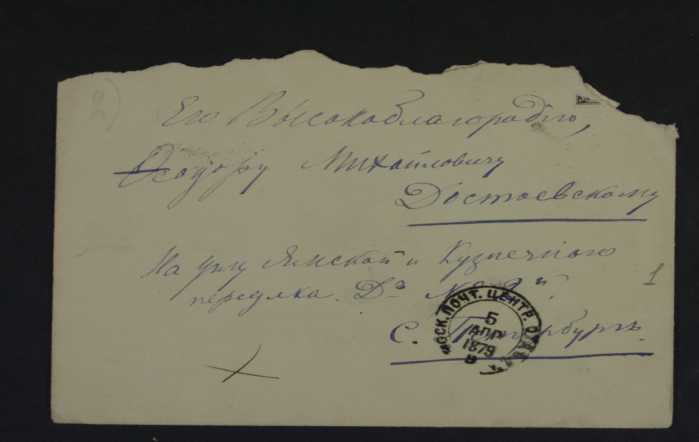 Его Высокоблагородію,
Ѳедору Михайловичу
Достоевскому
На углу Ямской и Кузнечного
переулка. Дъ №
С. Петербургъ.
1
МОСК. ПОЧТ. ЦЕНТР.
5
АПР
1879